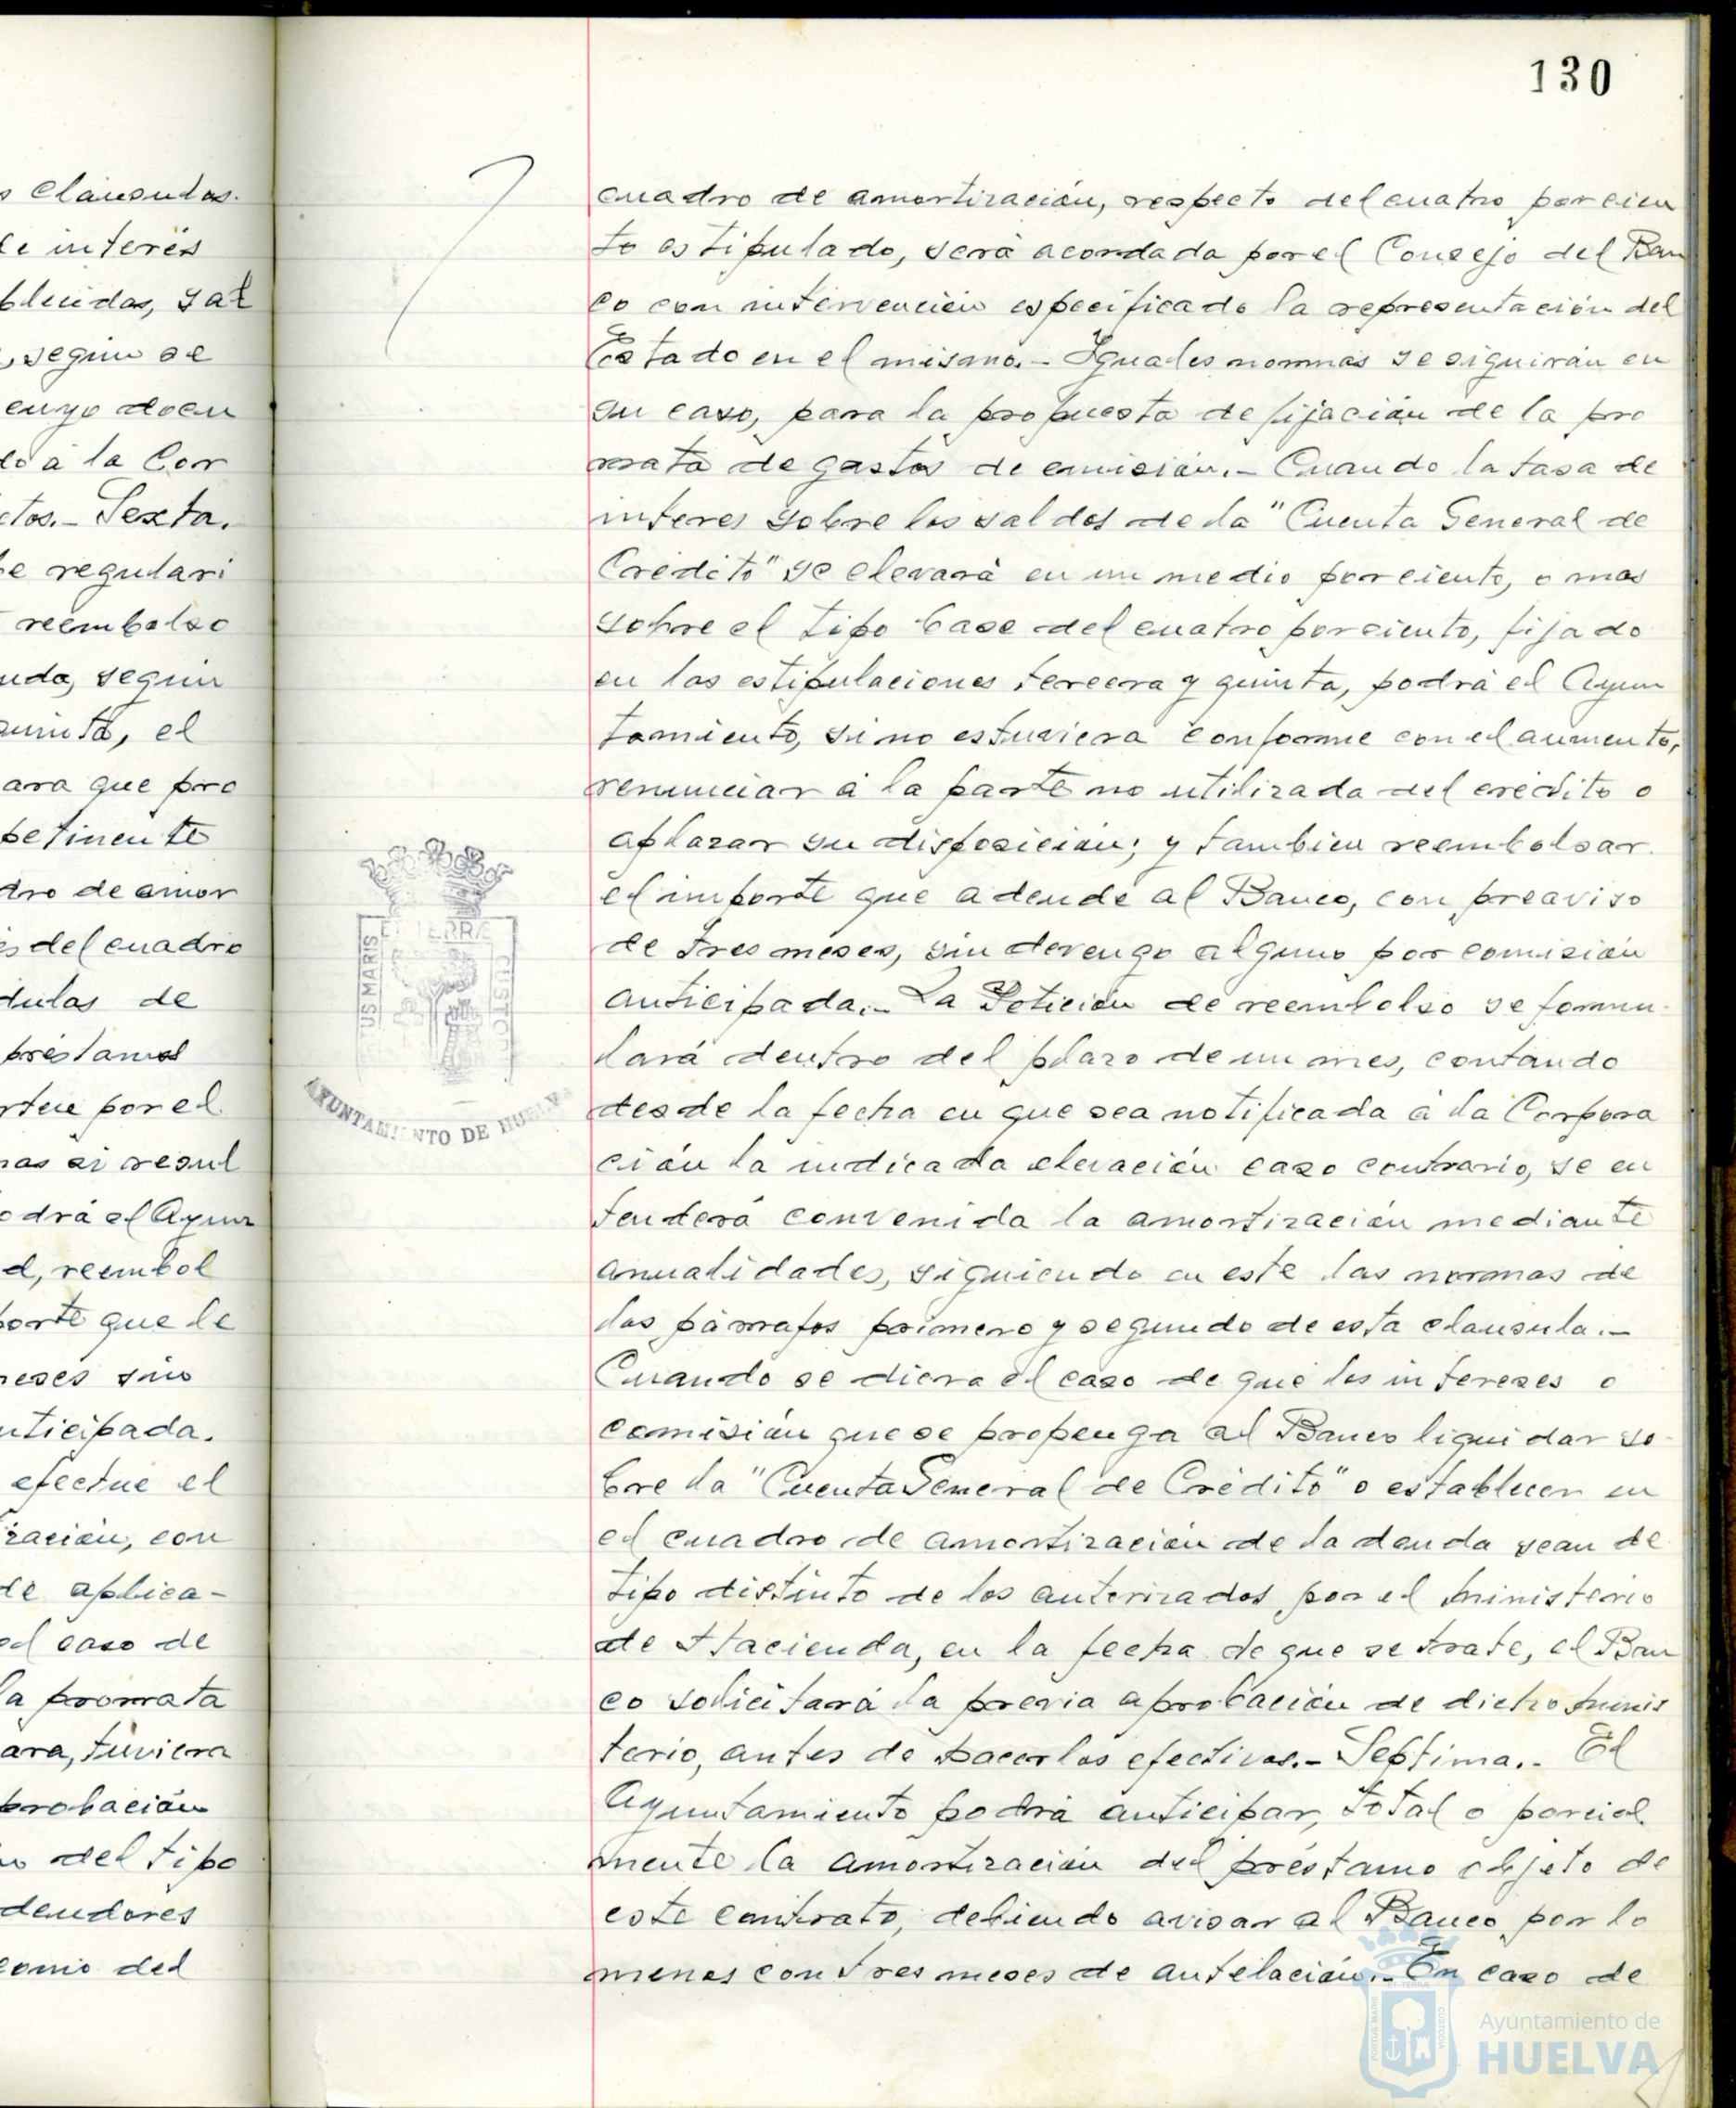 s Claúsulas.
de interés
blecidas, sal
, según se
cuyo docu
do á la Cor
ctos.- Sexta.
se regulari
reembolso
uda, según
quinta, el
ara que pro
petinente
dro de amor
es del cuadro
dulas de
préstamos
rtue por el
nas si resul
odrá el Ayun
d, reembol
porte que le
meses sin
nticipada.
efectue el
zación, con
de aplica-
el caso de
la prorrata
ara, tuviera
probación
n del tipo
deudores
como del
130
cuadro de amortización, respecto del cuatro por cien
to estipulado, será acordada por el Consejo del Ban
co con intervención especificado la representación del
Estado en el mismo.- Iguales normas se siguirán en
su caso, para la propuesta de fijación de la pro
rrata de gastos de emisión.- Cuando la tasa de
interes sobre los saldos de la "Cuenta General de
Crédito" se elevará en un medio por ciento, o mas
sobre el tipo base del cuatro por ciento, fijado
en las estipulaciones tercera y quinta, podrá el Ayun
tamiento, si no estuviera conforme con el aumento,
renunciar á la parte no utilizada del crédito o
aplazar su disposición; y tambien reembolsar
el importe que adeude al Banco, con preaviso
de tres meses, sin devengo alguno por comisión
anticipada.- La Petición de reembolso se formu-
lará dentro del plazo de un mes, contando
desde la fecha en que sea notificada á la Corpora
ción la indicada elevación caso contrario, se en
tenderá convenida la amortización mediante
anualidades, siguiendo en este las normas de
los párrafos primero y segundo de esta clausula.-
Cuando se diera el caso de que los intereses o
comisión que se propenga al Banco liquidar so-
bre la "Cuenta General de Crédito" o establecer en
el cuadro de amortización de la deuda sean de
tipo distinto de los autorizados por el Ministerio
de Hacienda, en la fecha de que se trate, el Ban
co solicitará la previa aprobación de dicho Minis
terio, antes de hacerlos efectivos.- Septima.- El
Ayuntamiento podrá anticipar, total o parcial
mente la amortización del préstamo objeto de
este contrato, debiendo avisar al Banco, por lo
menos con tres meses de antelación.- En caso de
US MARIS
ET TERRE
AYUNTAMIENTO DE HUELVA
PORTUS MARIS
CUSTODIA
Ayuntamiento de
HUELVA